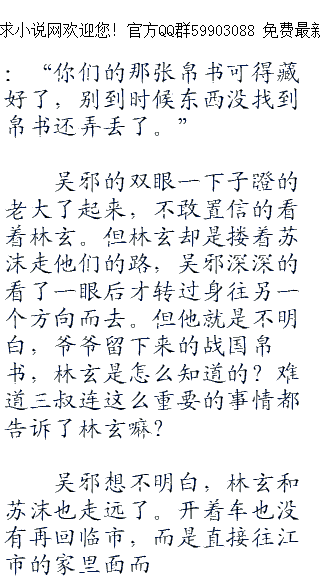 求小说网欢迎您！官方QQ群59903088 免费最新
：“你们的那张帛书可得藏
好了，别到时候东西没找到
帛书还弄丢了。”
吴邪的双眼一下子瞪的
老大了起来，不敢置信的看
着林玄。但林玄却是搂着苏
沫走他们的路，吴邪深深的
看了一眼后才转过身往另一
个方向而去。但他就是不明
白，爷爷留下来的战国帛
书，林玄是怎么知道的？难
道三叔连这么重要的事情都
告诉了林玄嘛？
吴邪想不明白，林玄和
苏沫也走远了。开着车也没
有再回临市，而是直接往江
市的家里面而